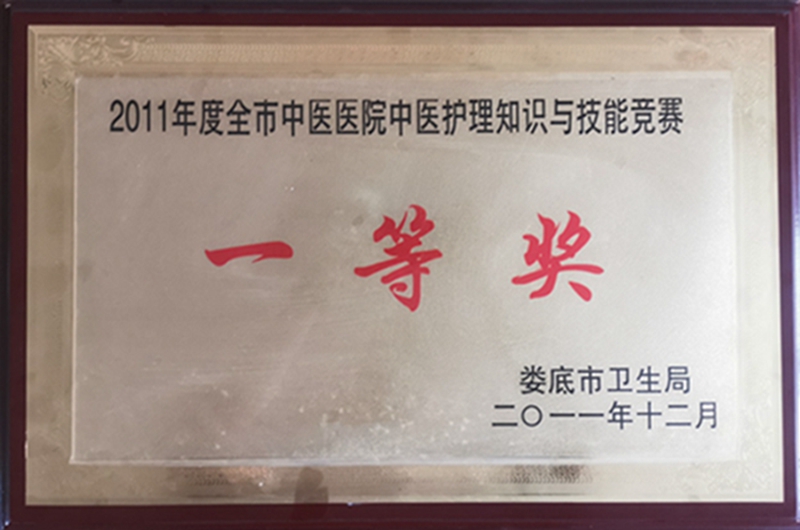 2011年度全市中医医院中医护理知识与技能竞赛
一等奖
娄底市卫生局
二〇一一年十二月